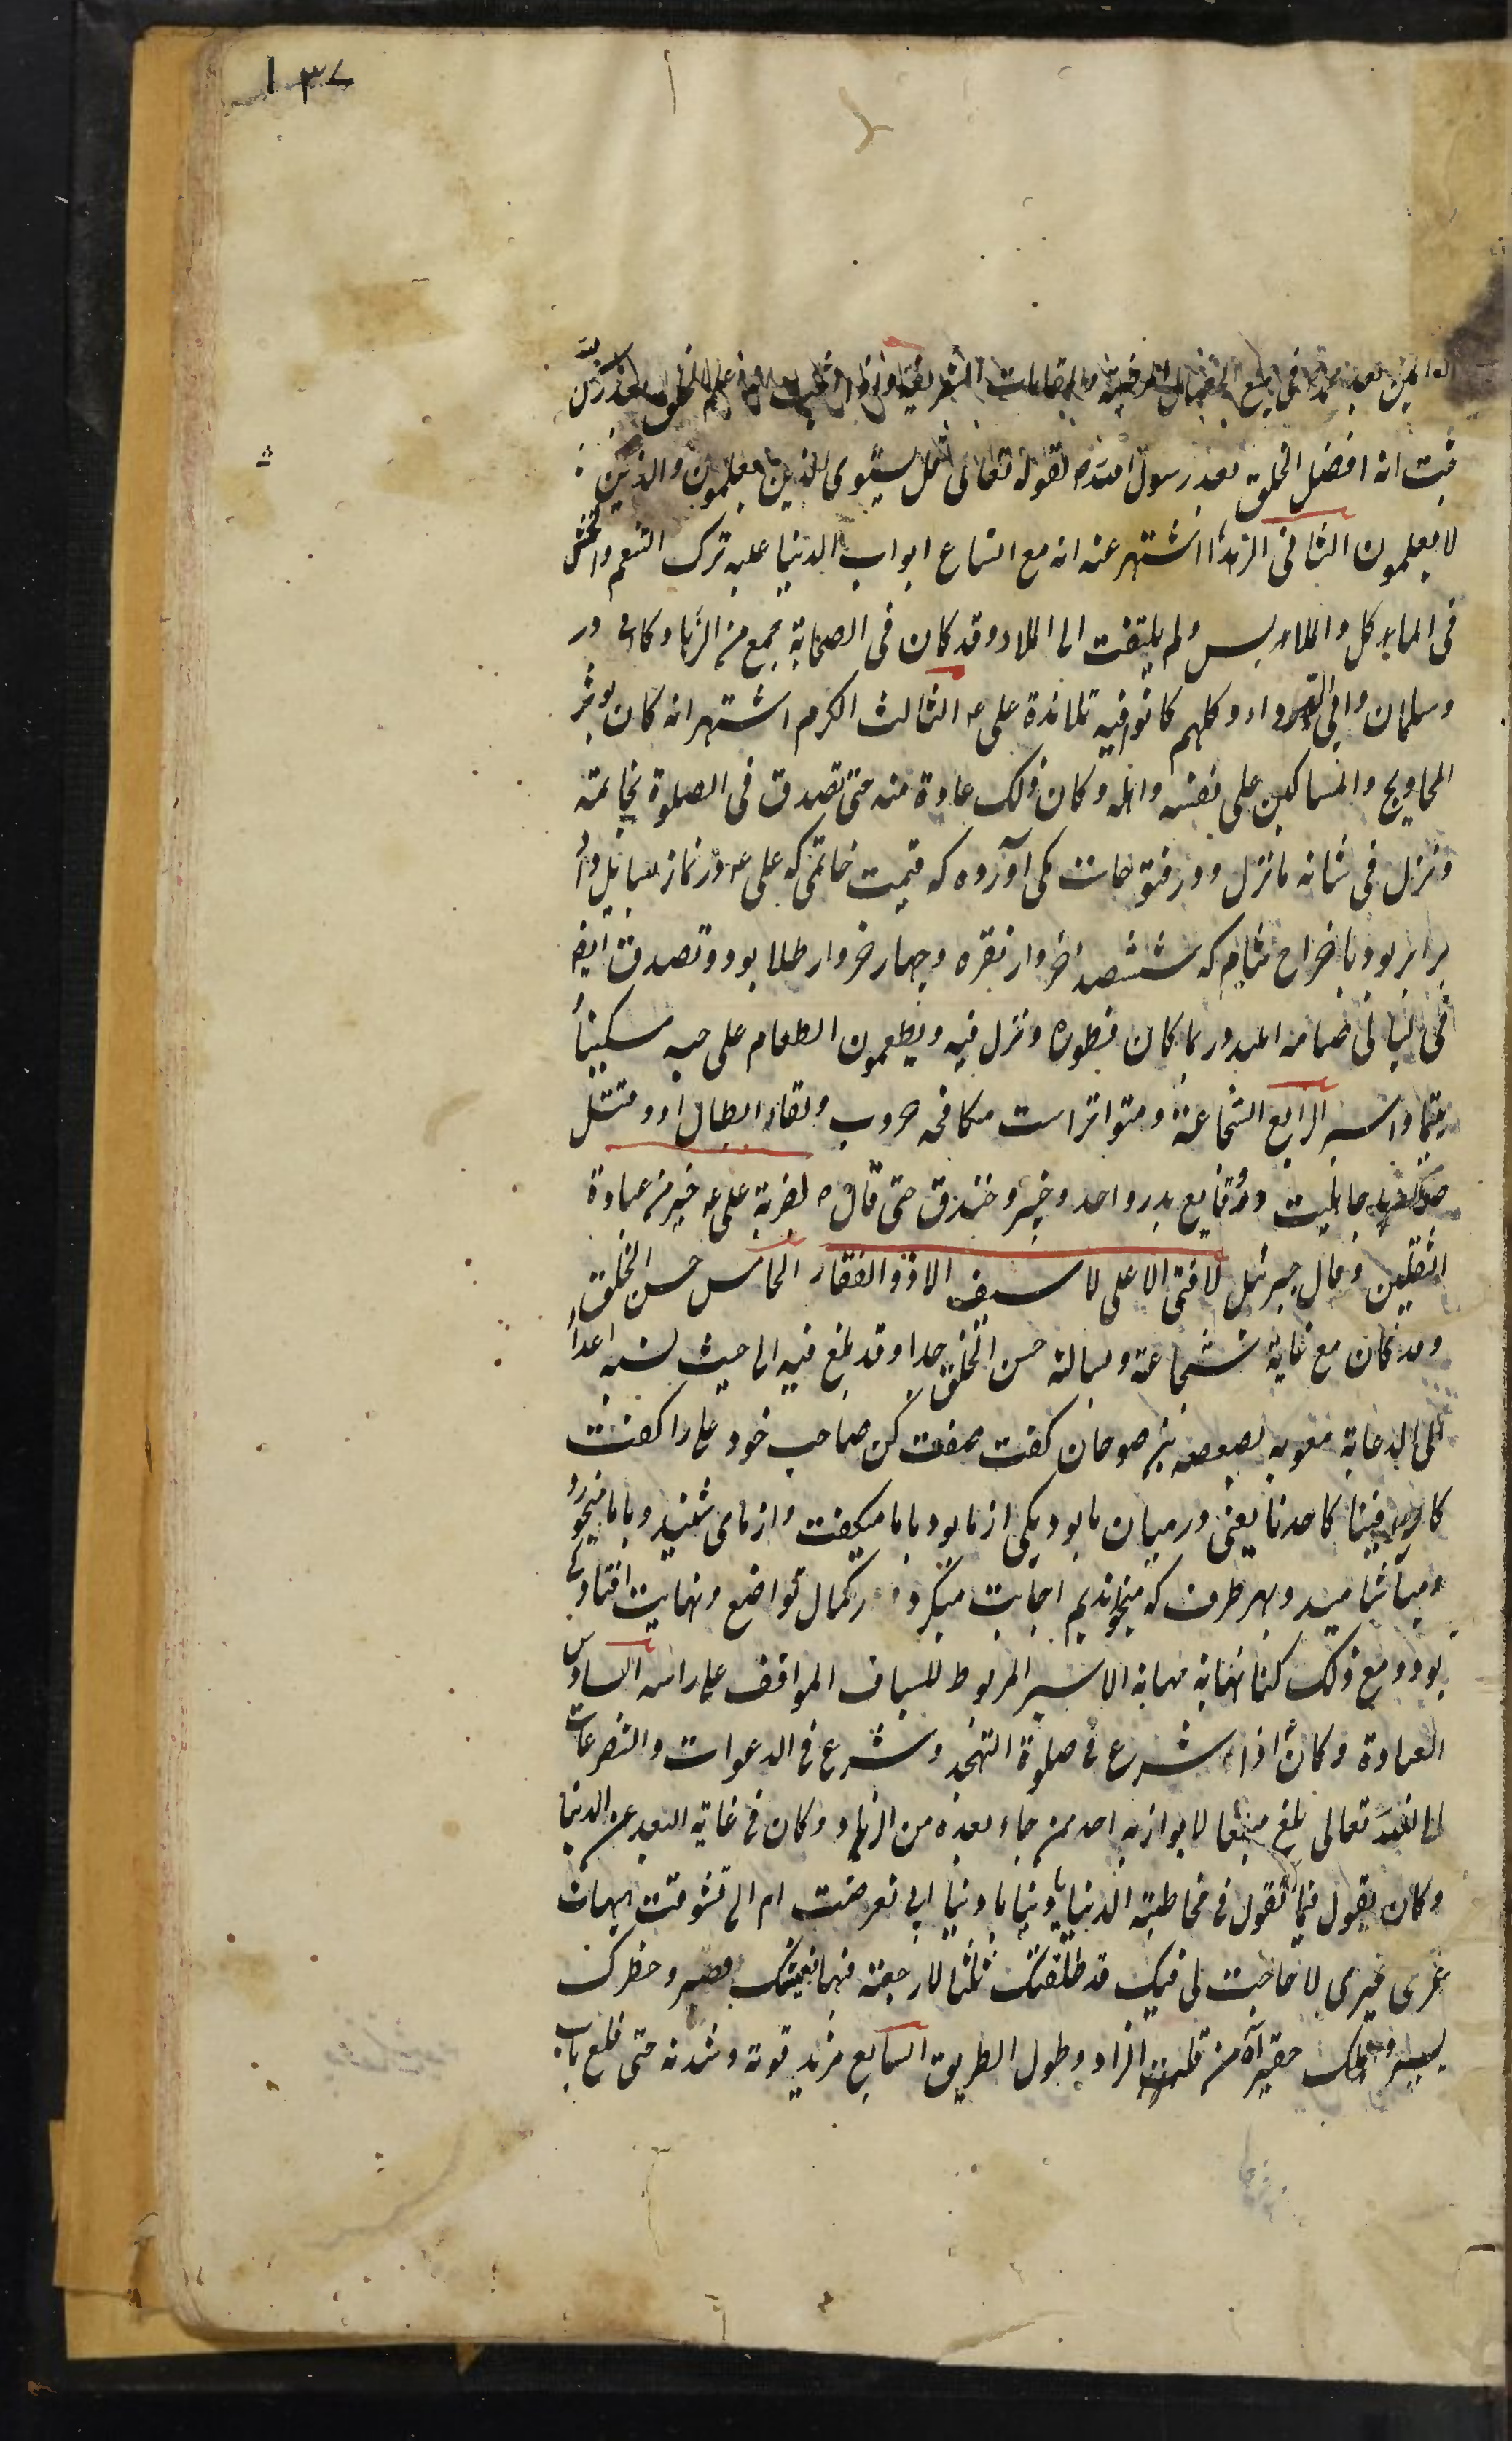 ١٣٧
فى جميع الفضائل المرضية والمقامات الشريفة
ثبت انه افضل الخلق بعد رسول الله ص لقوله تعالى هل يستوى الذين يعلمون والذين
لا يعلمون الثانى الزهد اشتهر عنه انه مع اتساع ابواب الدنيا عليه ترك التنعم وتخشن
فى المآكل والملابس ولم يلتفت الى الملاذ وقد كان فى الصحابة جمع من الزهاد كابى ذر
وسلمان وابى الدرداء وكلهم كانوا فيه تلامذة على ع الثالث الكرم اشتهر انه كان يؤثر
المحاويج والمساكين على نفسه واهله وكان ذلك عادة منه حتى تصدق فى الصلوة بخاتمه
ونزل فى شانه ما نزل ودر فتوحات مكى آورده كه قيمت خاتمى كه على ع در نماز بسايل داد
برابر بود با خراج شام كه ششصد خروار نقره وچهار خروار طلا بود وتصدق ايضا
فى ليالى صيامه المنذور بما كان فطوره ونزل فيه ويطعمون الطعام على حبه مسكينا
يتيما واسيرا الرابع الشجاعة ومتواتر است مكافحه حروب ولقاء ابطال او وقتل
جاهليت ووقايع بدر واحد وخيبر وخندق حتى قال ص لضربة على ع خير من عبادة
الثقلين وقال جبرئيل لا فتى الا على لا سيف الا ذو الفقار الخامس حسن الخلق
وقد كان مع غاية شجاعته وبسالته حسن الخلق جدا وقد بلغ فيه الى حيث نسبه اعداؤه
الى الدعابة معويه بصعصعه بن صوحان گفت صفت كن صاحب خود على را گفت
كان فينا كاحدنا يعنى در ميان ما بود يكى از ما بود با ما ميگفت واز ما مى شنيد وبا ما ميخورد
وميآشاميد وبهر طرف كه ميخوانديم اجابت ميكرد در كمال تواضع ونهايت افتادگى
بود ومع ذلك كنا نهابه مهابة الاسير المربوط للسياف الواقف على راسه السادس
العبادة وكان اذا شرع فى صلوة التهجد وشرع فى الدعوات والتضرعات
الى الله تعالى بلغ مبلغا لا يوازيه احد ممن جاء بعده من الزهاد وكان فى غاية البعد عن الدنيا
وكان يقول فيما يقول فى مخاطبة الدنيا يا دنيا يا دنيا ابى تعرضت ام الى تشوقت هيهات
غرى غيرى لا حاجت لى فيك قد طلقتك ثلثا لا رجعة فيها فعيشك قصير وخطرك
يسير واملك حقير آه من قلة الزاد وطول الطريق السابع مزيد قوته وشدته حتى قلع باب